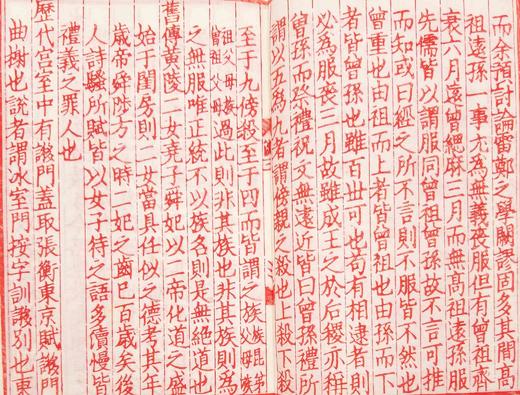 而余預討論雷鄭之學闕謬固多其間高
祖遠孫一事尤為無義喪服但有曾祖齊
衰六月遠曾緦麻三月而無高祖遠孫服
先儒皆以謂服同曾祖曾孫故不言可推
而知或曰經之所不言則不服皆不然也
曾重也由祖而上者皆曾祖也由孫而下
者皆曾孫也雖百世可也苟有相逮者則
必為服喪三月故雖成王之於后稷亦稱
曾孫而祭禮祝文無遠近皆曰曾孫禮所
謂以五為九者謂傍親之殺也上殺下殺
至于九傍殺至于四而皆謂之族族昆弟父母族
祖父母族曾祖父母過此則非其族也非其族則為
之無服唯正統不以族名則是無絕道也
舊傳黃陵二女堯子舜妃以二帝化道之盛
始于閨房則二女當具任姒之德考其年
歲帝舜陟方之時二妃之齒已百歲矣後
人詩騷所賦皆以女子待之語多瀆慢皆
禮義之罪人也
歷代宮室中有謻門蓋取張衡東京賦謻門
曲榭也說者謂冰室門按字訓謻別也東